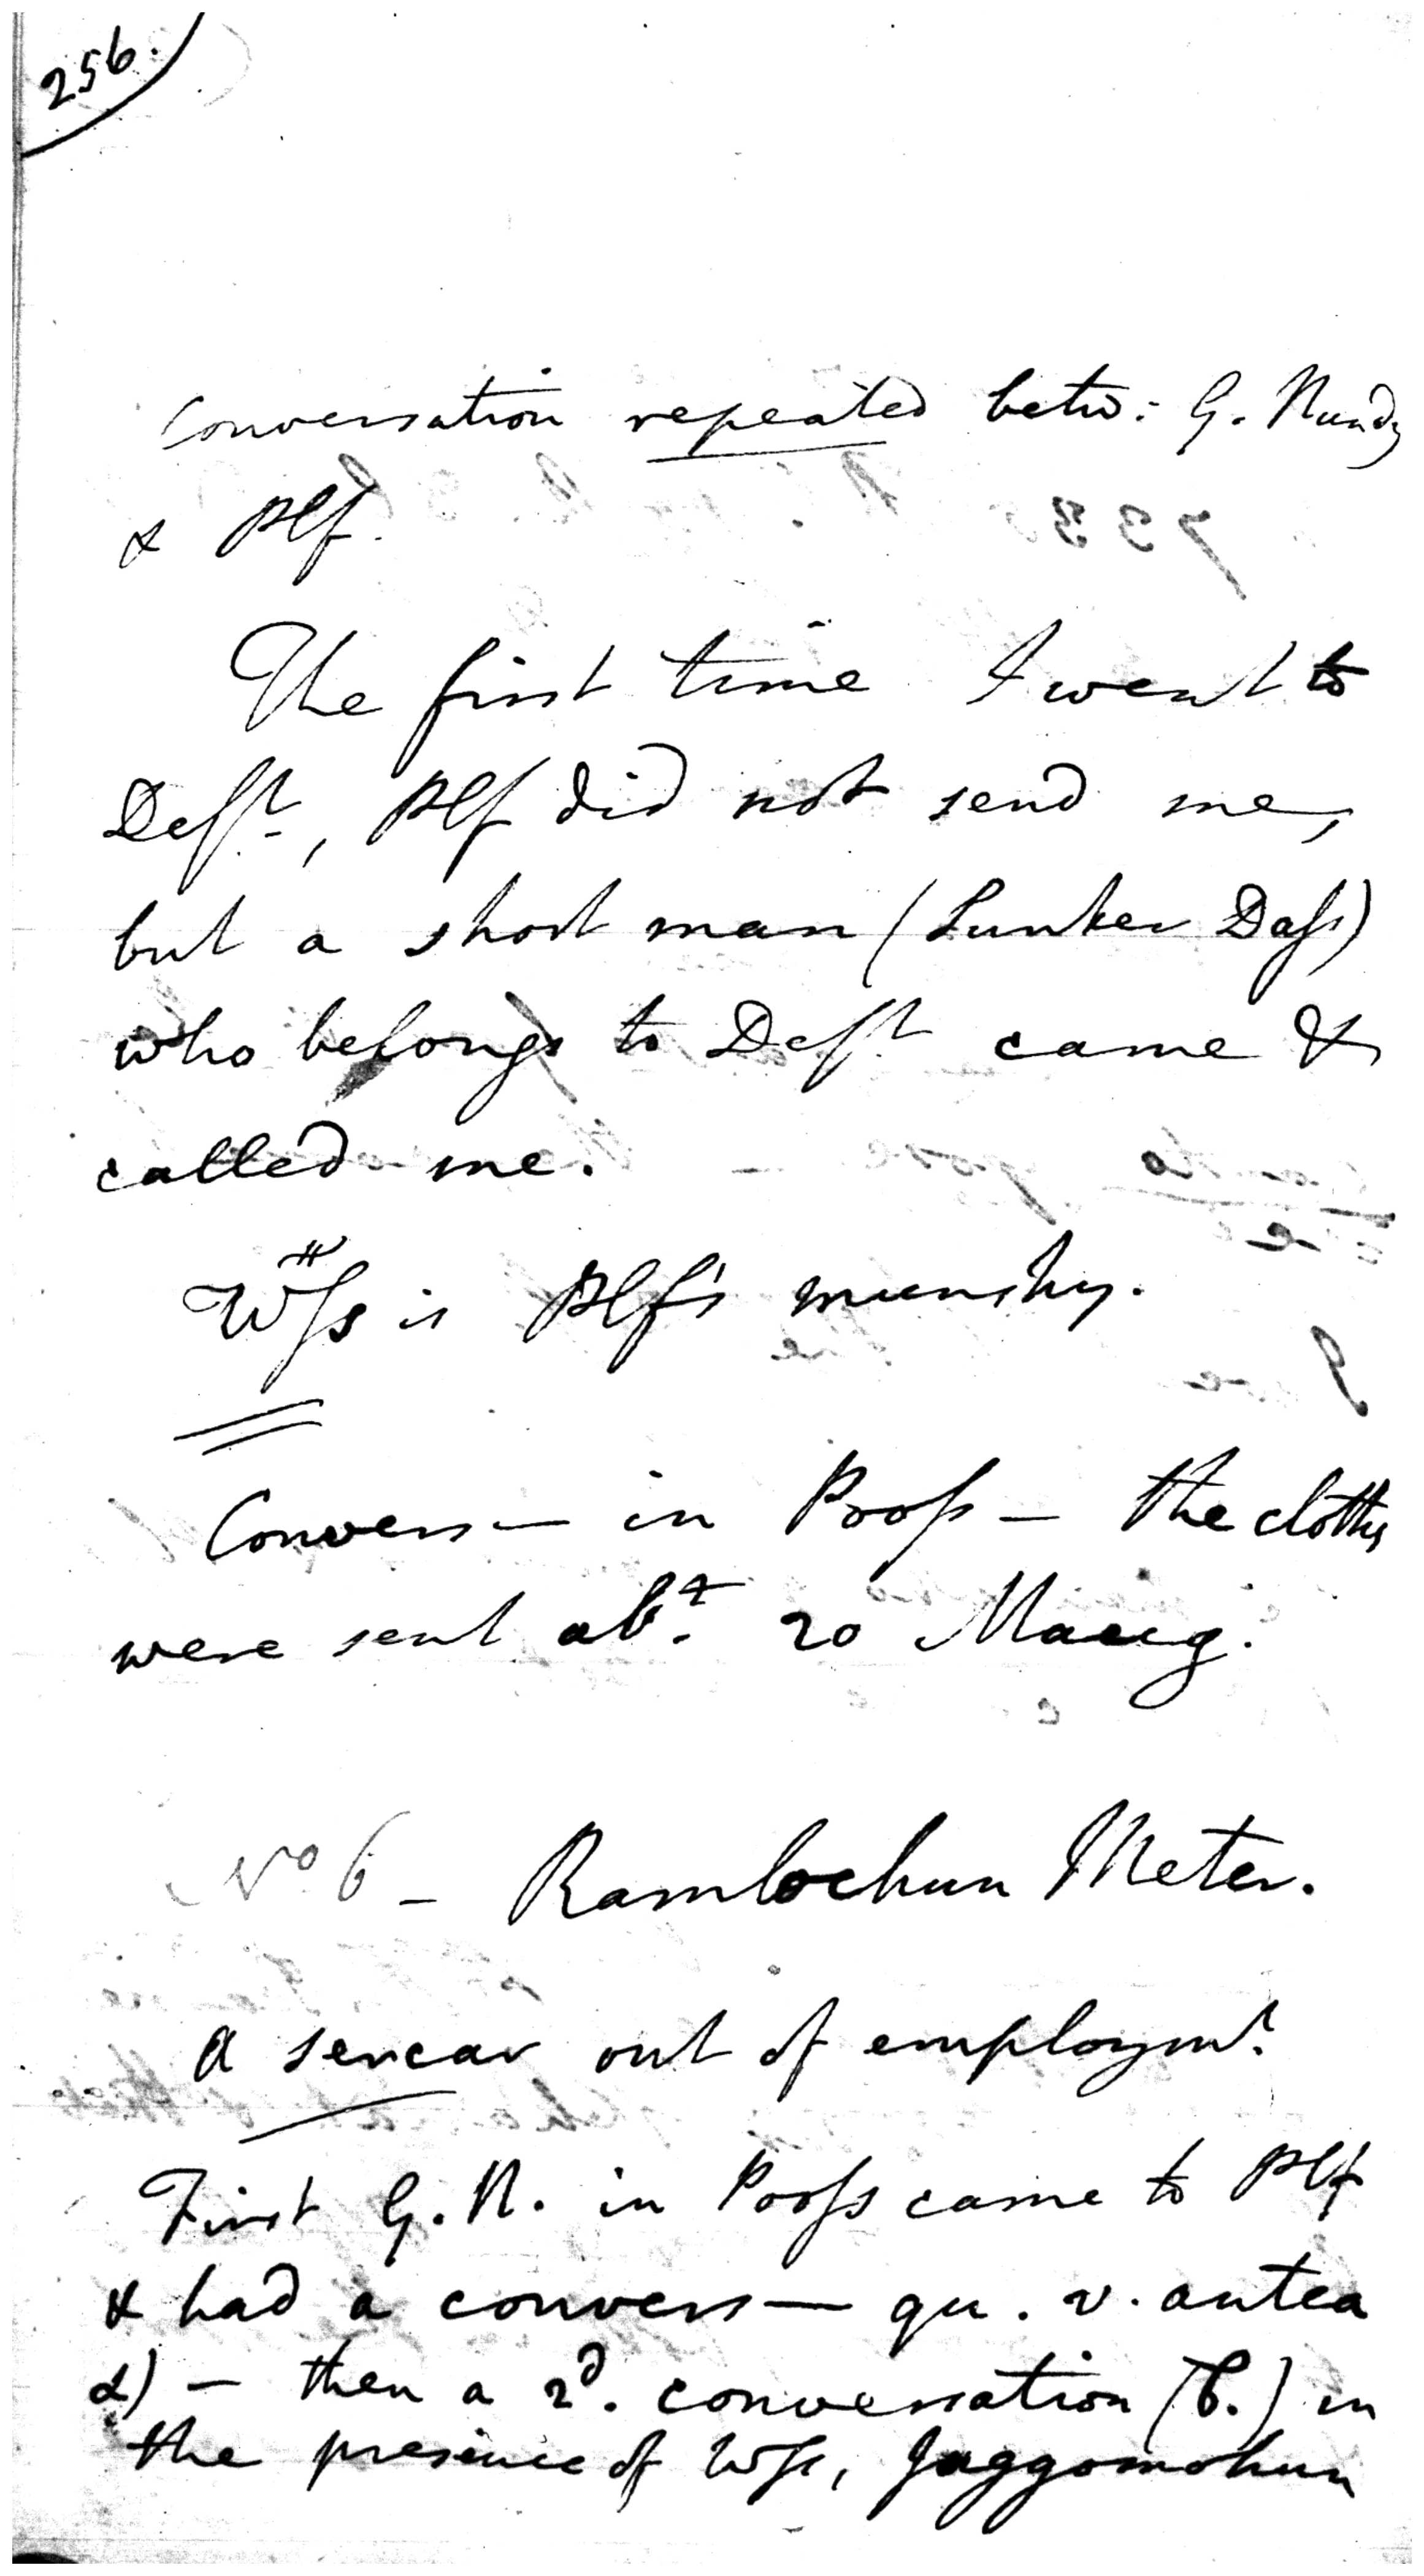 256.
Conversation repeated betw: G. Nundy
& Plf.
The first time I went to
Deft, Plf did not send me,
but a short man (Sunker Dass)
who belongs to Deft came &
called me.
Wss is Plf's munshy.
Convers— in Poos — the cloths
were sent abt. 20 Maug.
No 6 — Ramlochun Meter.
A sercar out of employmt.
First G. N. in Pooss came to Plf
& had a convers— qu. v. antea
α) — then a 2d. conversation (β.) in
the presence of Wss, Juggomohun